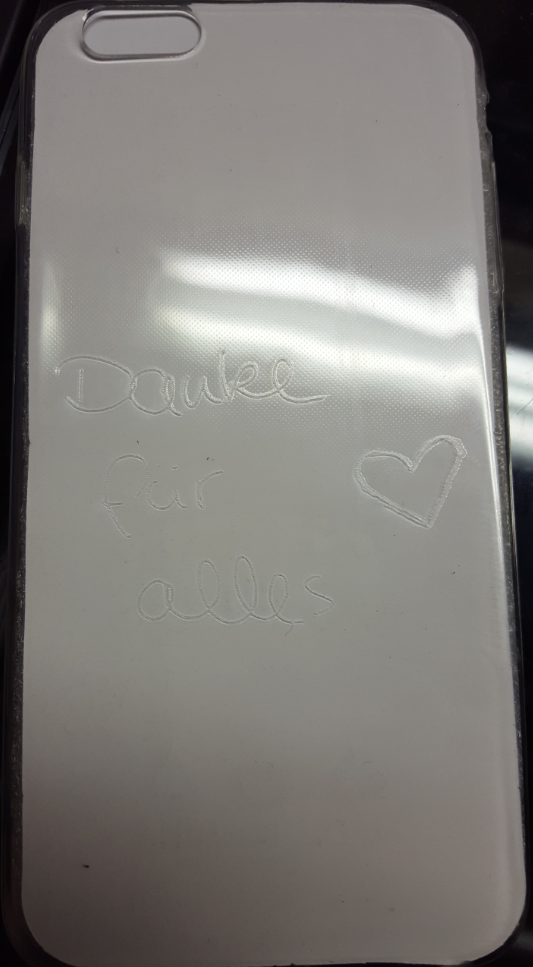 Danke
für
alles